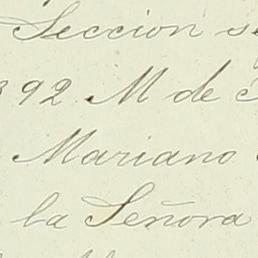 Seccion
892 M de
Mariano
la Señora